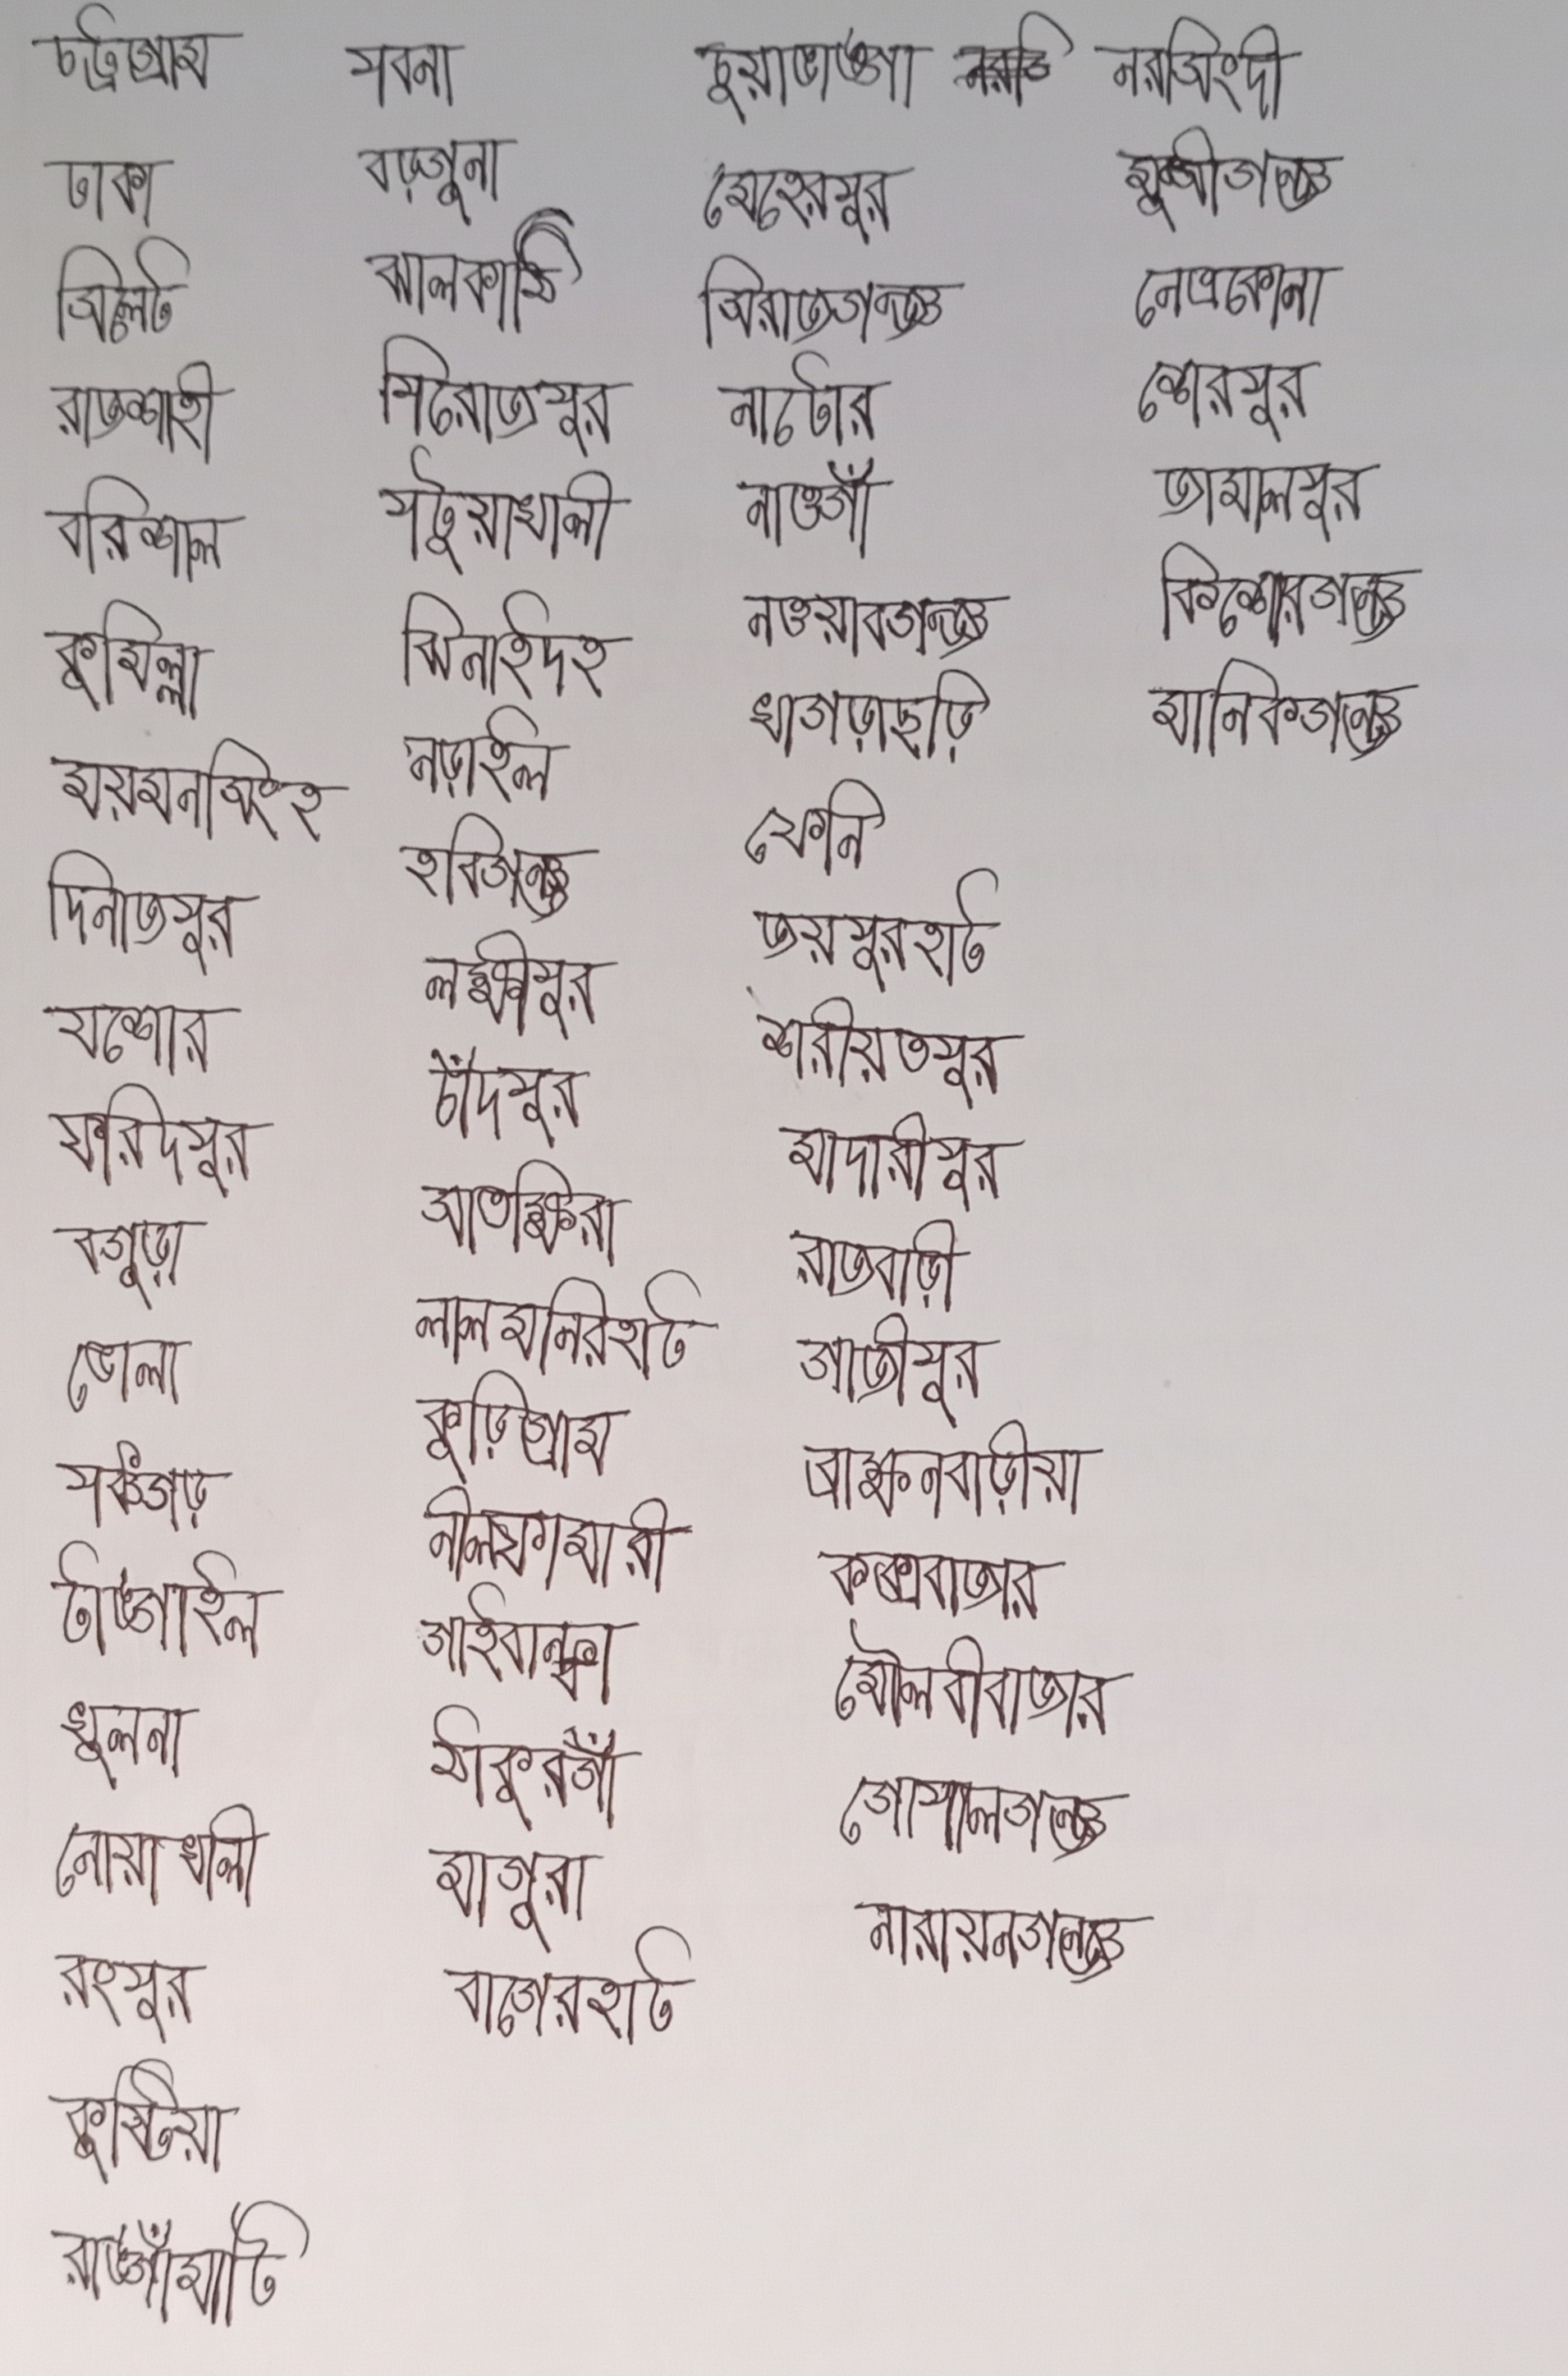 চট্রগ্রাম
ঢাকা
সিলেট
রাজশাহী
বরিশাল
কুমিল্লা
ময়মনসিংহ
দিনাজপুর
যশোর
ফরিদপুর
বগুড়া
ভোলা
পঞ্চগড়
টাঙ্গাইল
খুলনা
নোয়াখালী
রংপুর
কুষ্টিয়া
রাঙ্গাঁমাটি
পবনা
বড়গুনা
ঝালকাঠি
পিরোজপুর
পটুয়াখালী
ঝিনাইদহ
নড়াইল
হবিগন্জ
লক্ষ্মীপুর
চাঁদপুর
সাতক্ষিরা
লালমনিরহাট
কুড়িগ্রাম
নীলফামারী
গাইবান্ধা
ঠাকুরগাঁ
মাগুরা
বাগেরহাট
চুয়াডাঙ্গা
মেহেরপুর
সিরাজগন্জ
নাটোর
নাওগাঁ
নওয়াবগন্জ
খাগড়াছড়ি
ফেনি
জয়পুরহাট
শরীয়তপুর
মাদারীপুর
রাজবাড়ী
গাজীপুর
ব্রাহ্মনবাড়ীয়া
কক্সবাজার
মৌলবীবাজার
গোপালগন্জ
নারায়নগন্জ
নরসিংদী
মুন্সীগন্জ
নেত্রকোনা
শেরপুর
জামালপুর
কিশোরগন্জ
মানিকগন্জ